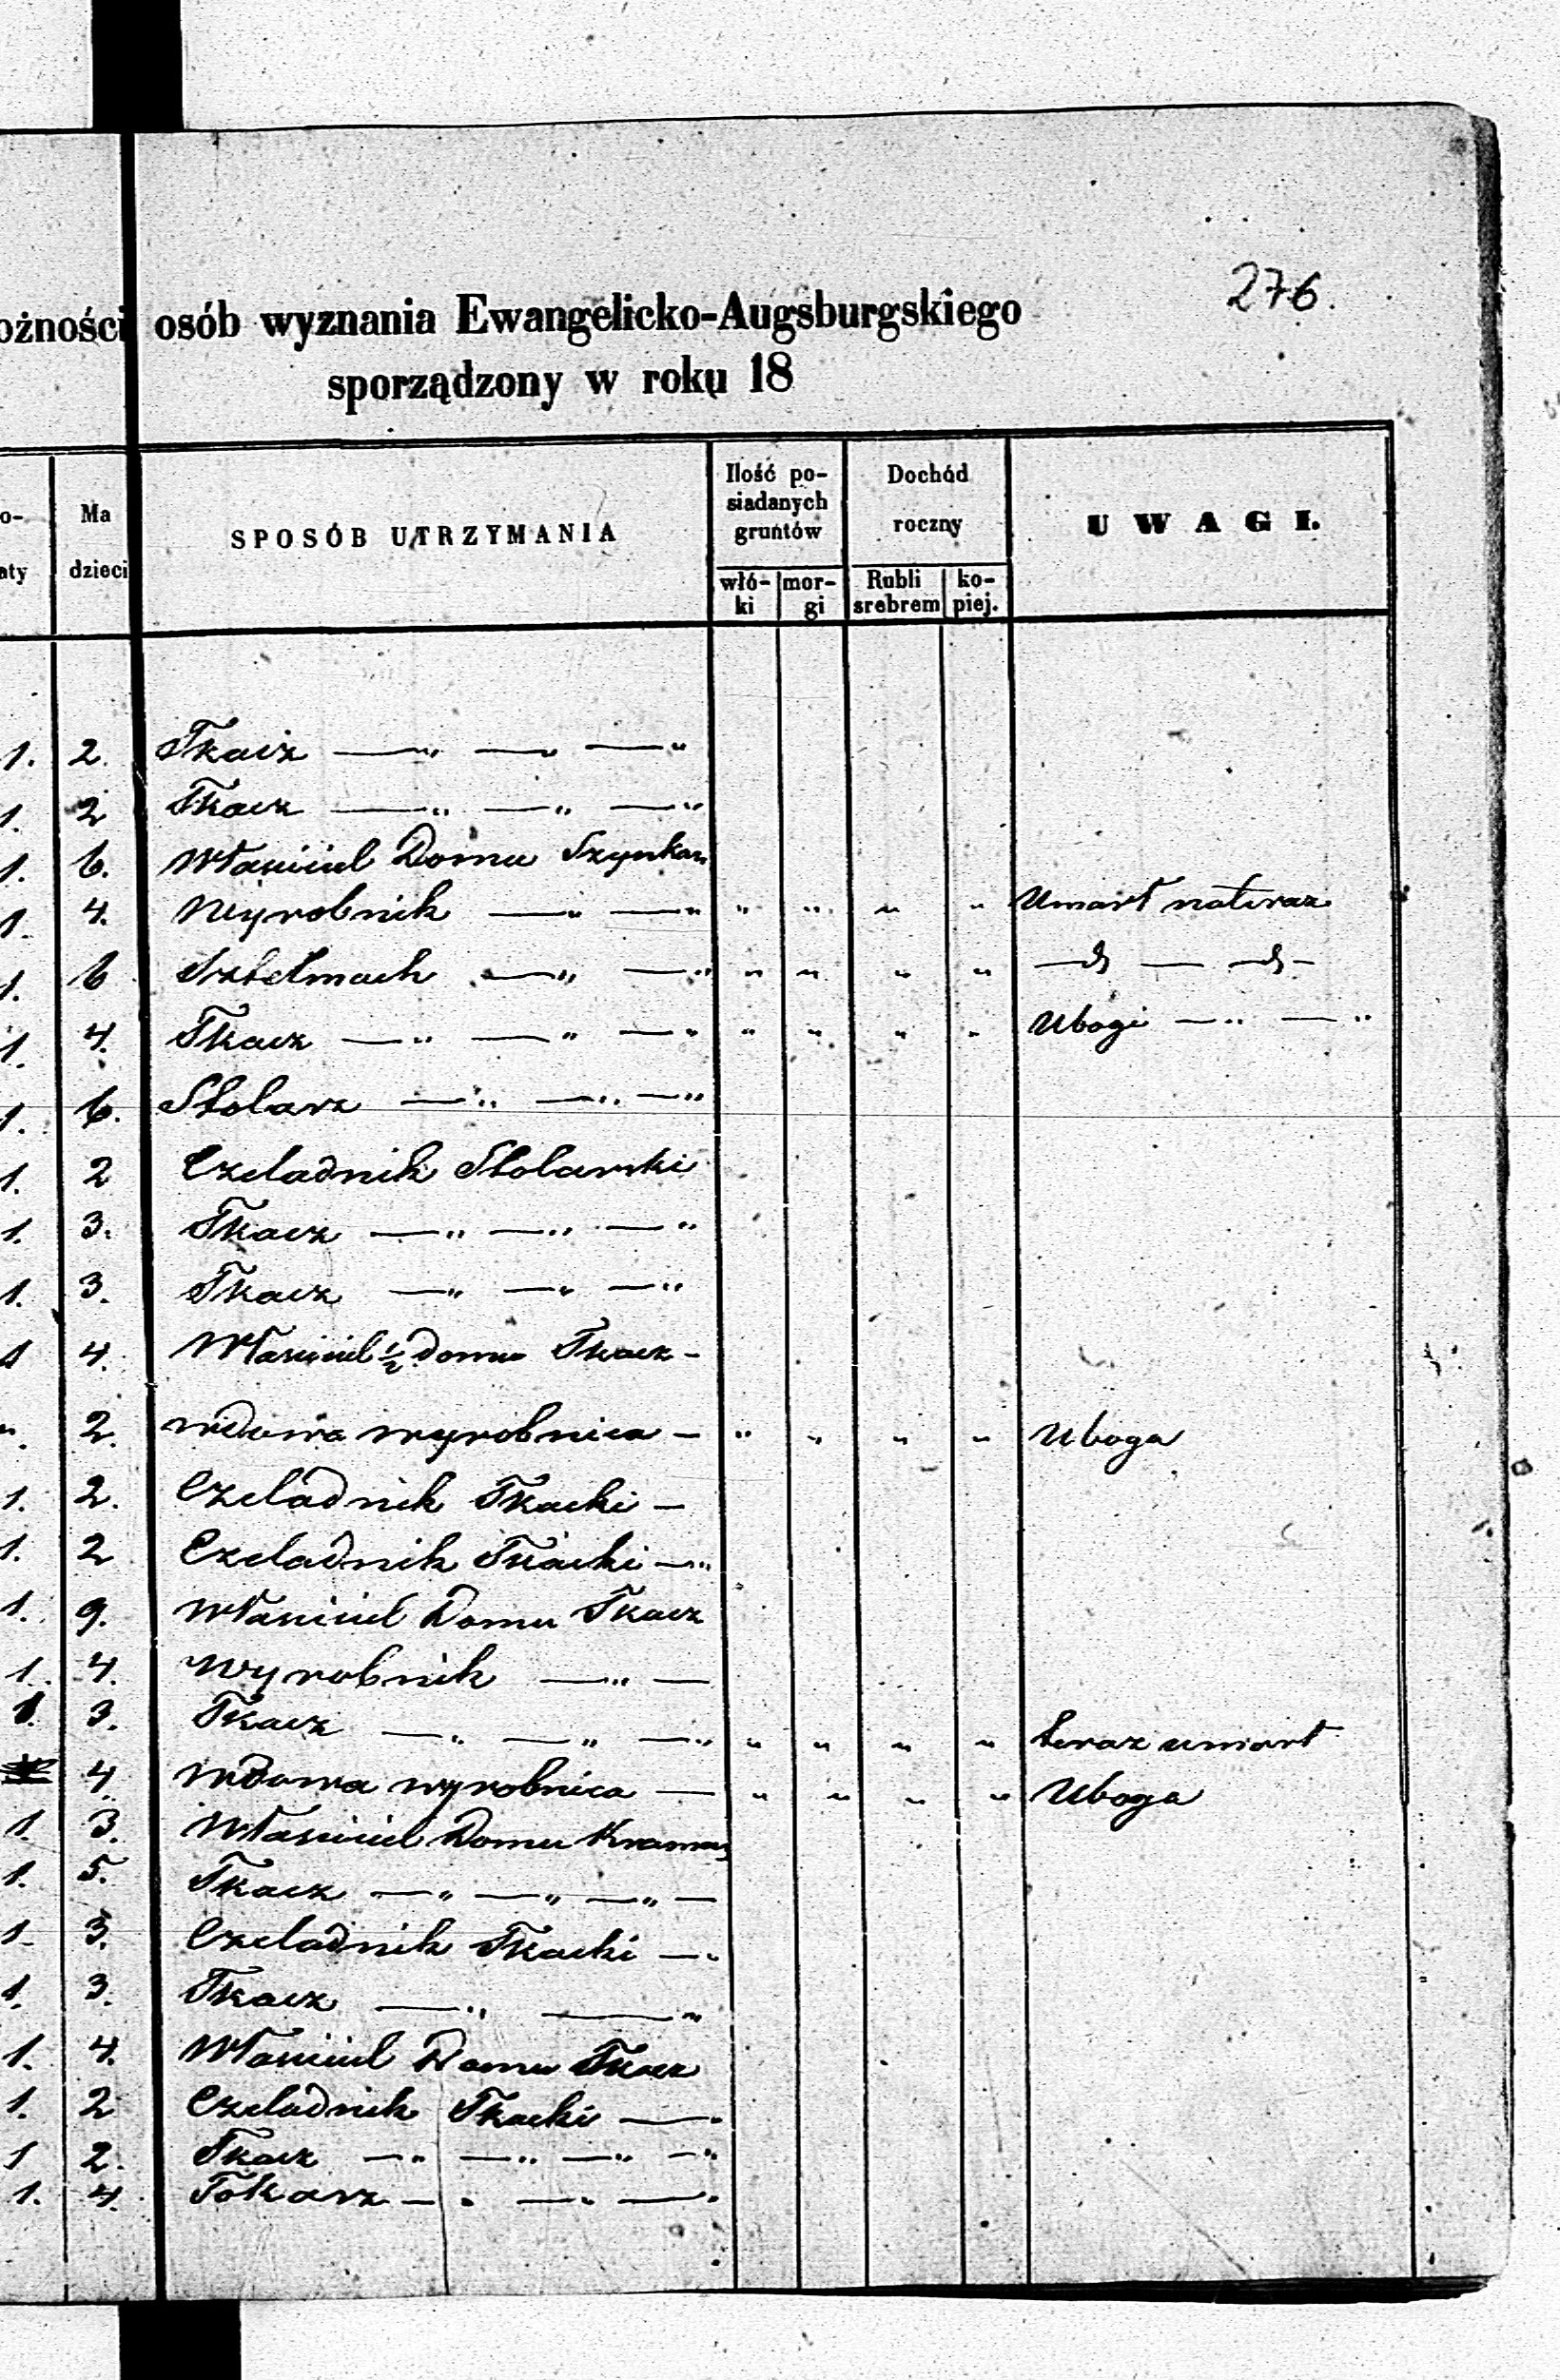 276.
ożności osób wyznania Ewangelicko-Augsburgskiego
sporządzony w roku 18
o-
aty
Ma
dzieci
SPOSÓB UTRZYMANIA
Ilość po-
siadanych
gruntów
włó-
ki
mor-
gi
Dochód
roczny
Rubli
srebrem
ko-
piej.
UWAGI.
1. 2. Tkacz —„ —„ —„
1. 2 Tkacz —„ —„ —„
1. 6. Właściciel Domu Szynkarz
1. 4. Wyrobnik —„ —„ „ „ „ „ Umarł nateraz
1. 6 Sztelmach —„ —„ „ „ „ „ —d —d—
1. 4. Tkacz —„ —„ —„ „ „ „ „ Ubogi —„ —„
1. 6. Stolarz —„ —„ —„
1. 2 Czeladnik Stolarski
1. 3. Tkacz —„ —„ —„
1. 3. Tkacz —„ —„ —„
1 4. Właściciel ½ domu Tkacz —
„. 2. Wdowa wyrobnica — „ „ „ „ Uboga
1. 2. Czeladnik Tkacki —
1. 2 Czeladnik Tkacki —„
1. 9. Właściciel Domu Tkacz
1. 4. Wyrobnik —„ —
1. 3. Tkacz —„ —„ —„ „ „ „ „ teraz umarł
4. Wdowa wyrobnica — „ „ „ „ Uboga
1. 3. Właściciel Domu Kramarz
1. 5. Tkacz —„ —„ —„ —
1- 3. Czeladnik Tkacki —„
1. 3. Tkacz —„ —„
1. 4. Właściciel Domu Tkacz
1. 2 Czeladnik Tkacki —„
1 2. Tkacz —„ —„ —„ —„
1. 4. Tokarz —„ —„ —„